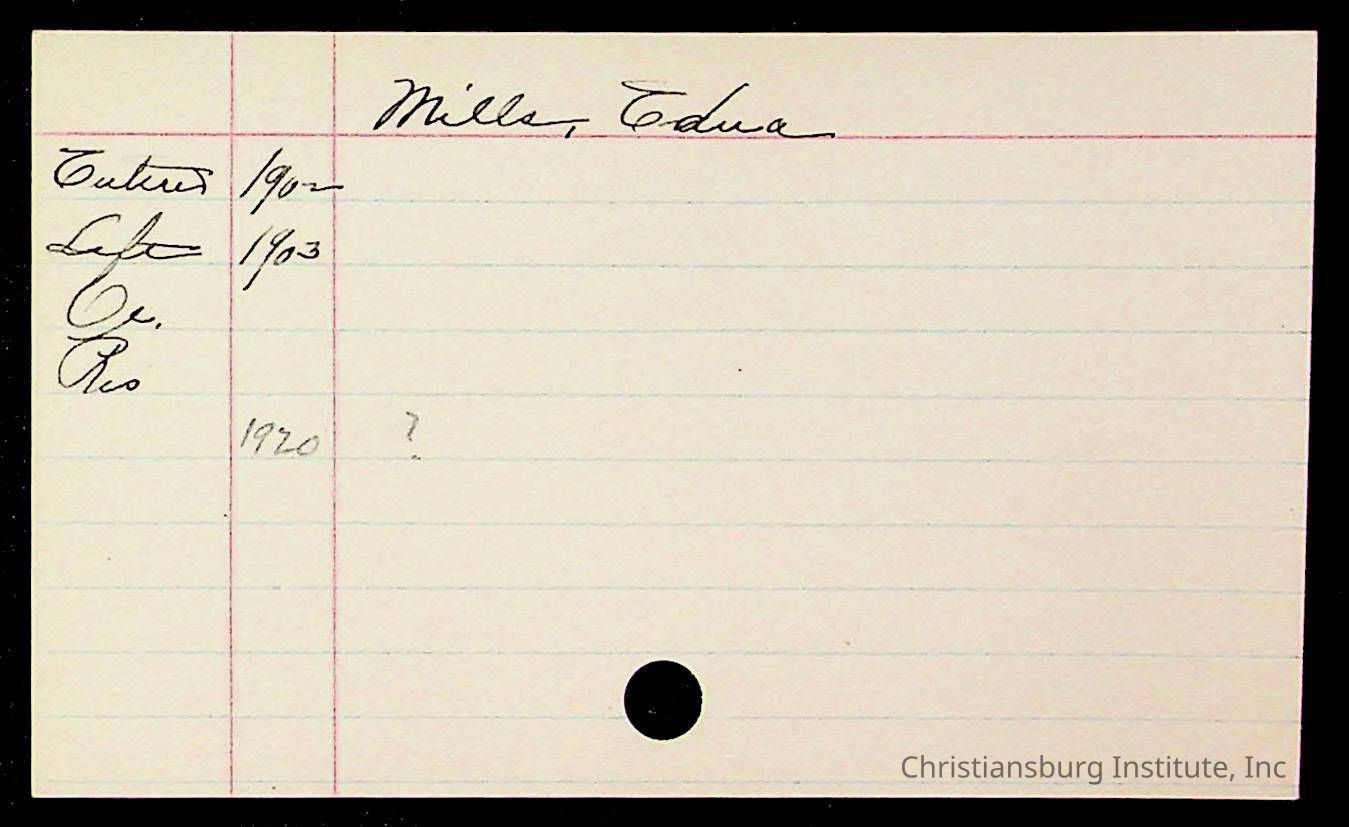 Mills, Edna
Entered 1902
Left 1903
Oc.
Res
1920 ?
Christiansburg Institute, Inc